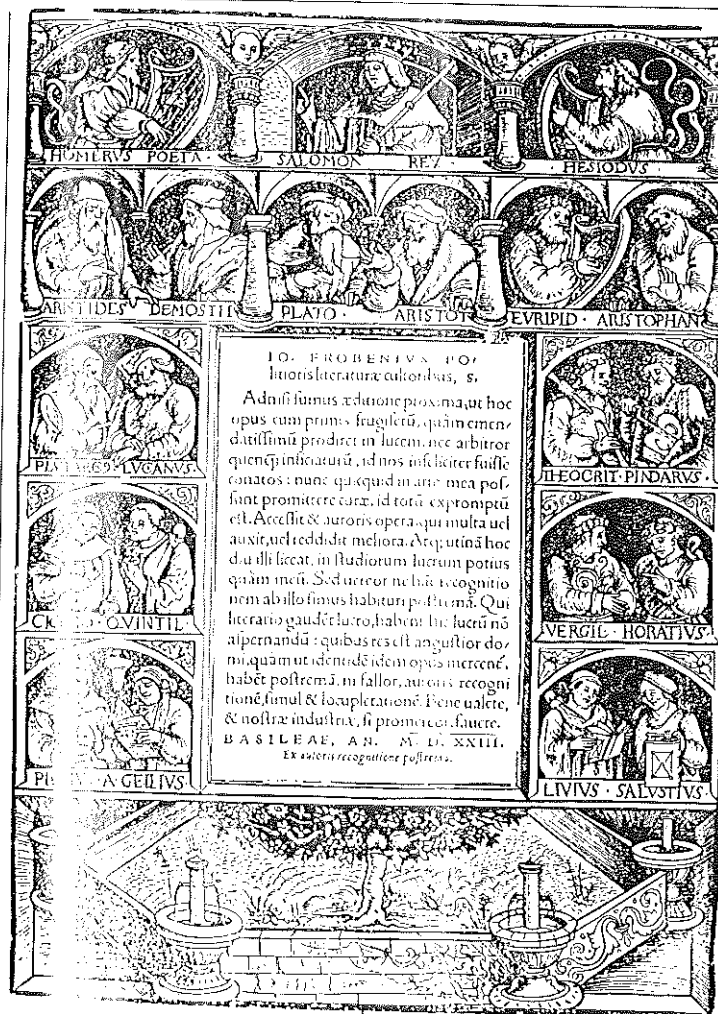 HOMERVS POETA · SALOMON REX · HESIODVS ·
ARISTIDES DEMOSTH PLATO · ARISTOT EVRIPID · ARISTOPHAN
IO. FROBENIVS PO/
litioris literaturæ cultoribus, S.
Adnisi sumus æditione proxima, ut hoc
opus cum primis frugiferū, quàm emen/
datissimū prodiret in lucem: nec arbitror
quenq̃ inficiaturū, id nos infeliciter fuisse
conatos: nunc quicquid in arte mea pos/
sunt promittere curæ, id totū expromptū
est. Accessit & autoris opera, qui multa uel
auxit, uel reddidit meliora. Atq; utinā hoc
diu illi liceat, in studiorum lucrum potius
quàm meū. Sed uereor ne hāc recognitio
nem ab illo simus habituri postremā. Qui
literario gaudēt lucro, habent hic lucrū nō
aspernandū: quibus res est angustior do/
mi, quàm ut identidē idem opus mercent̃,
habēt postremā, ni fallor, autoris recogni
tionē, simul & locupletationē. Bene ualete,
& nostræ industriæ, si promeretur, fauete.
BASILEAE, AN. M. D. XXIII.
Ex autoris recognitione postrema.
LVCANVS
QVINTIL
A GELLIVS
THEOCRIT · PINDARVS ·
VERGIL · HORATIVS ·
LIVIVS · SALVSTIVS